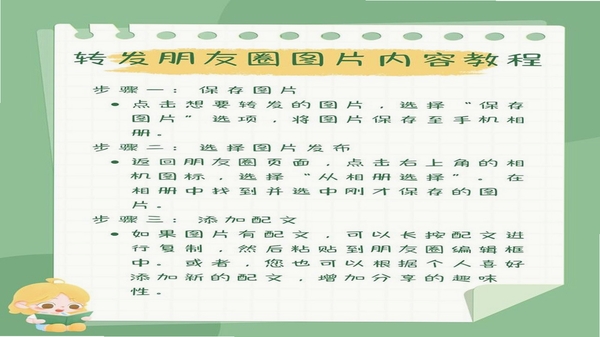 转发朋友圈图片内容教程
步骤一：保存图片
• 点击想要转发的图片，选择“保存
图片”选项，将图片保存至手机相
册。
步骤二：选择图片发布
• 返回朋友圈页面，点击右上角的相
机图标，选择“从相册选择”。在
相册中找到并选中刚才保存的图
片。
步骤三：添加配文
• 如果图片有配文，可以长按配文进
行复制，然后粘贴到朋友圈编辑框
中。或者，您也可以根据个人喜好
添加新的配文，增加分享的趣味
性。